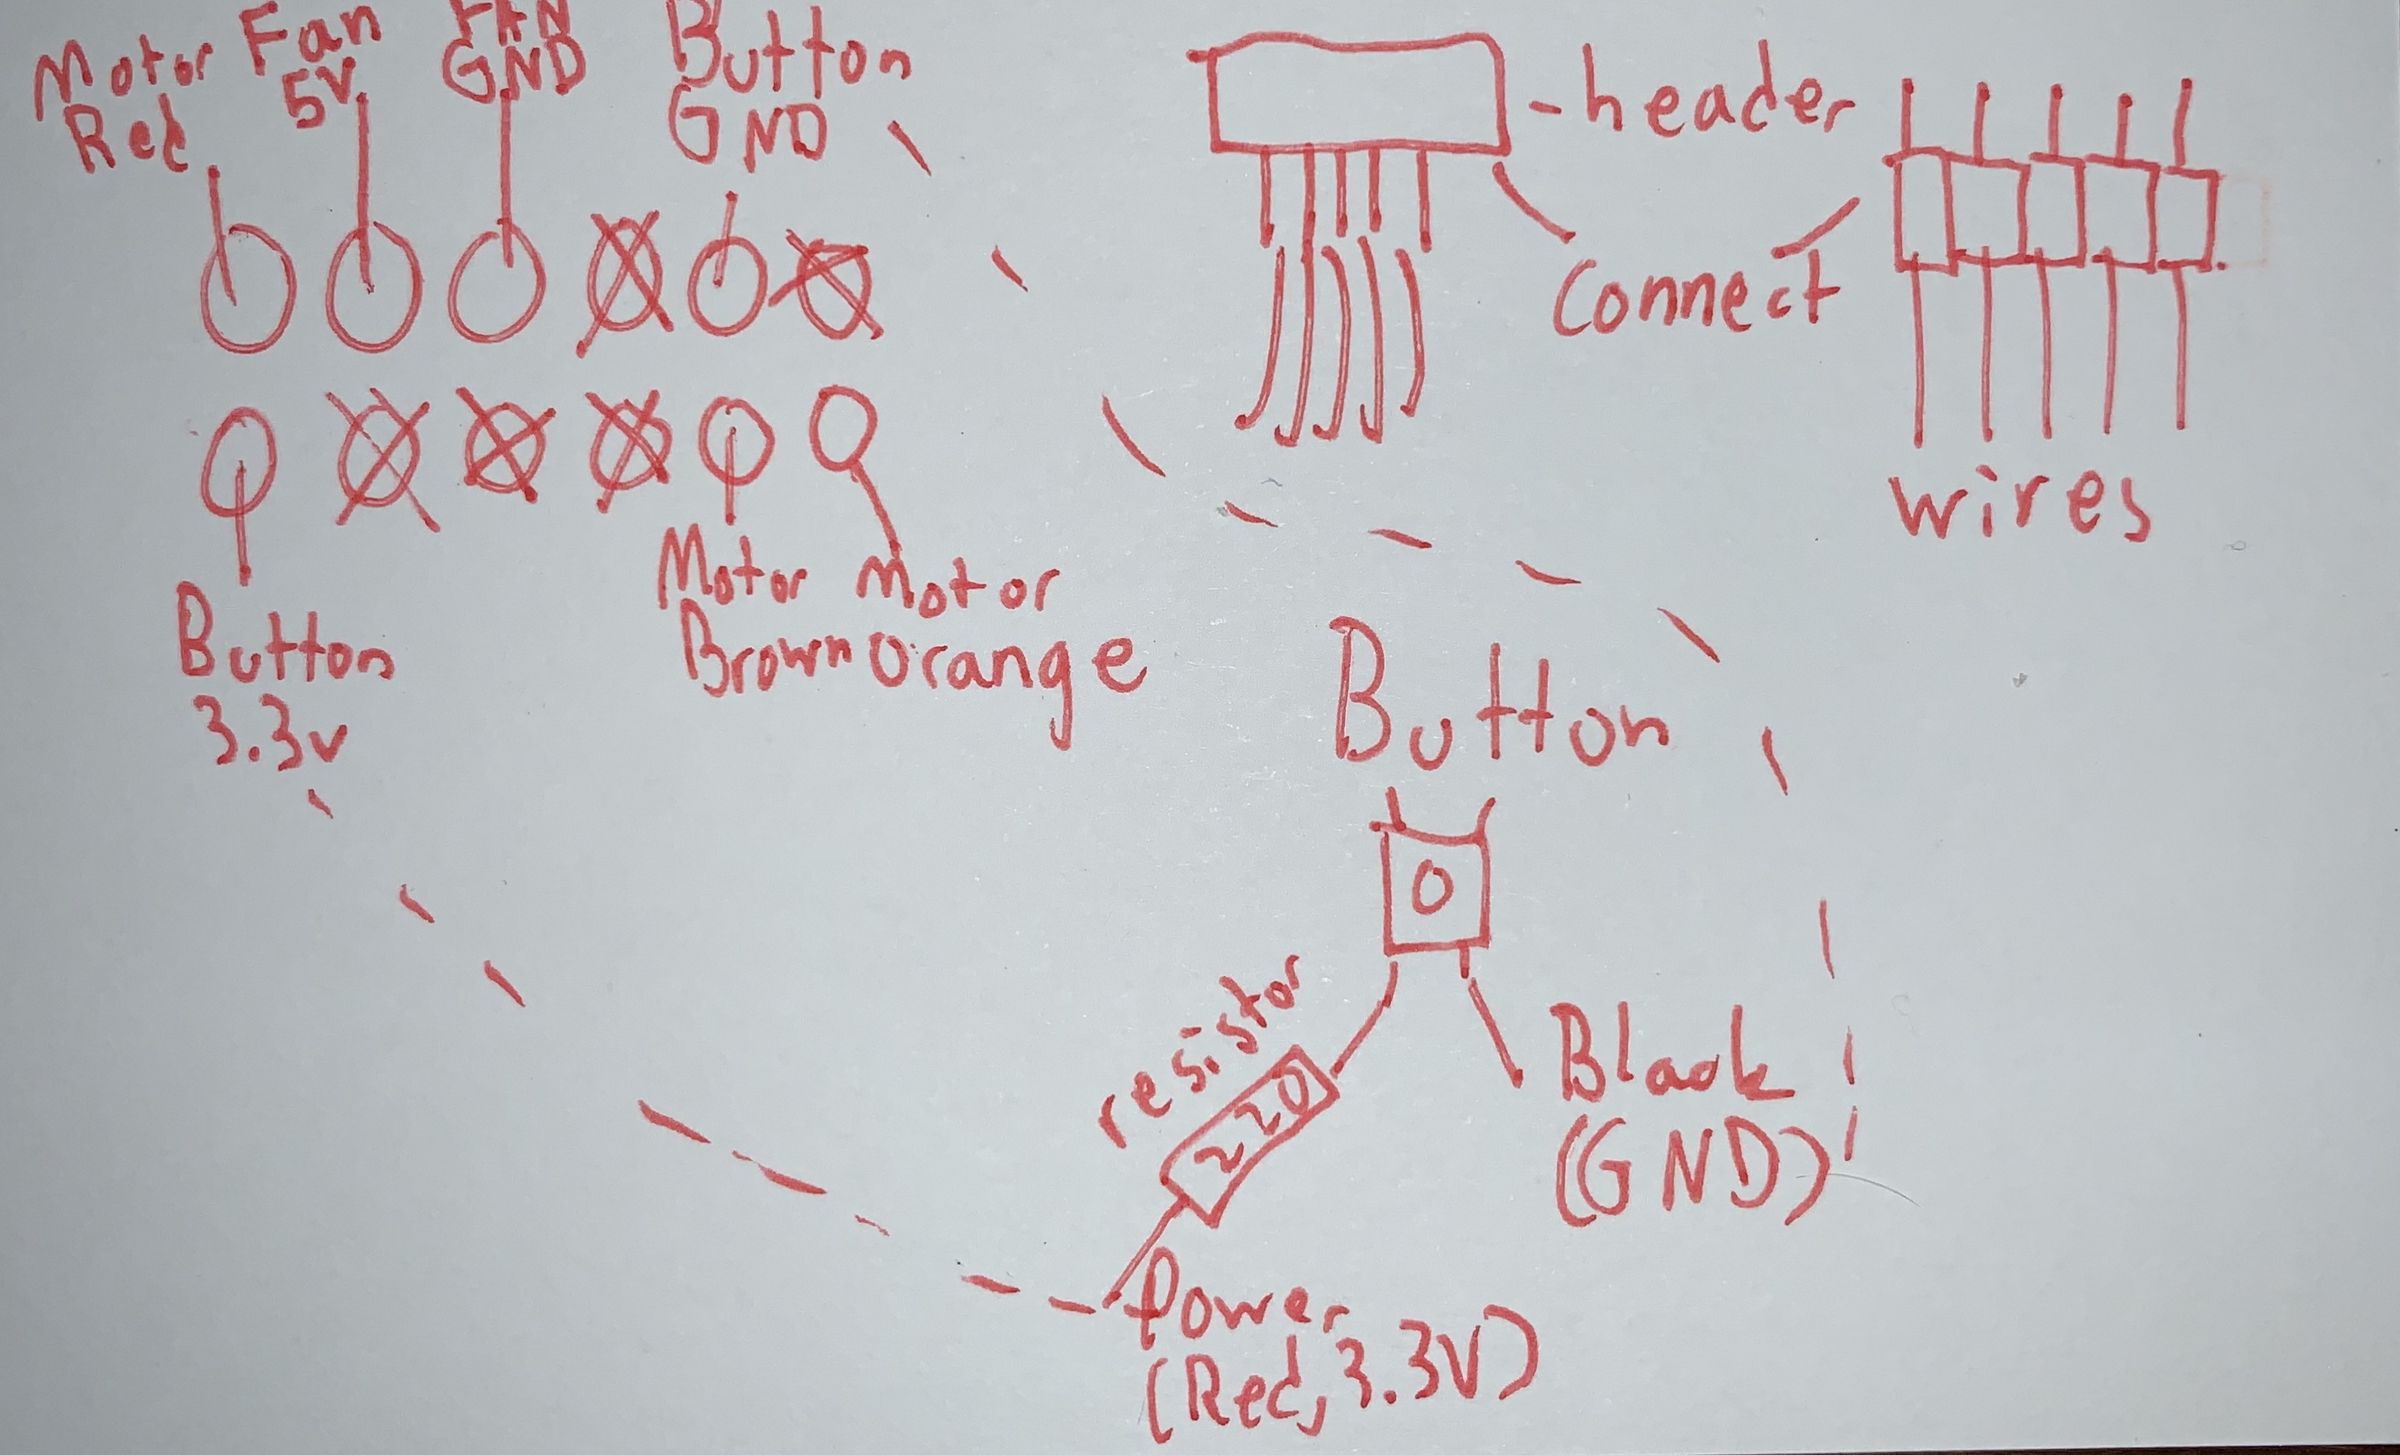 Motor
Red
Fan
5V
FAN
GND
Button
GND
-header
Connect
wires
Button
3.3v
Motor
Brown
Motor
Orange
Button
resistor
220
Black
(GND)
Power
(Red, 3.3V)